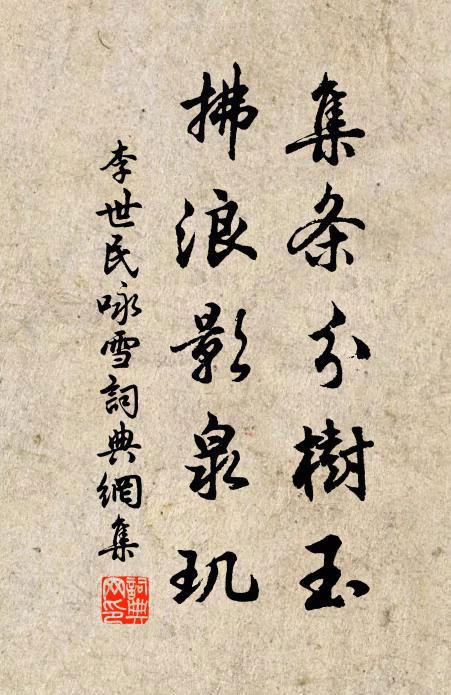 集条分樹玉
拂浪影泉玑
李世民咏雪詞典網集
詞典网印